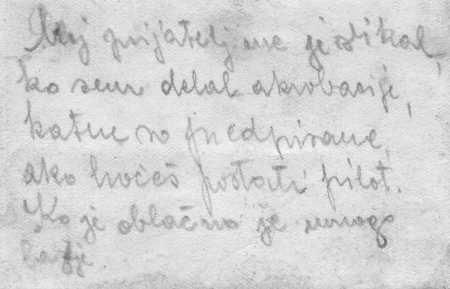 Moj prijatelj me je slikal,
ko sem delal akrobacije,
katere so predpisane,
ako hočeš postati pilot.
Ko je oblačno je mnogo
lepše.